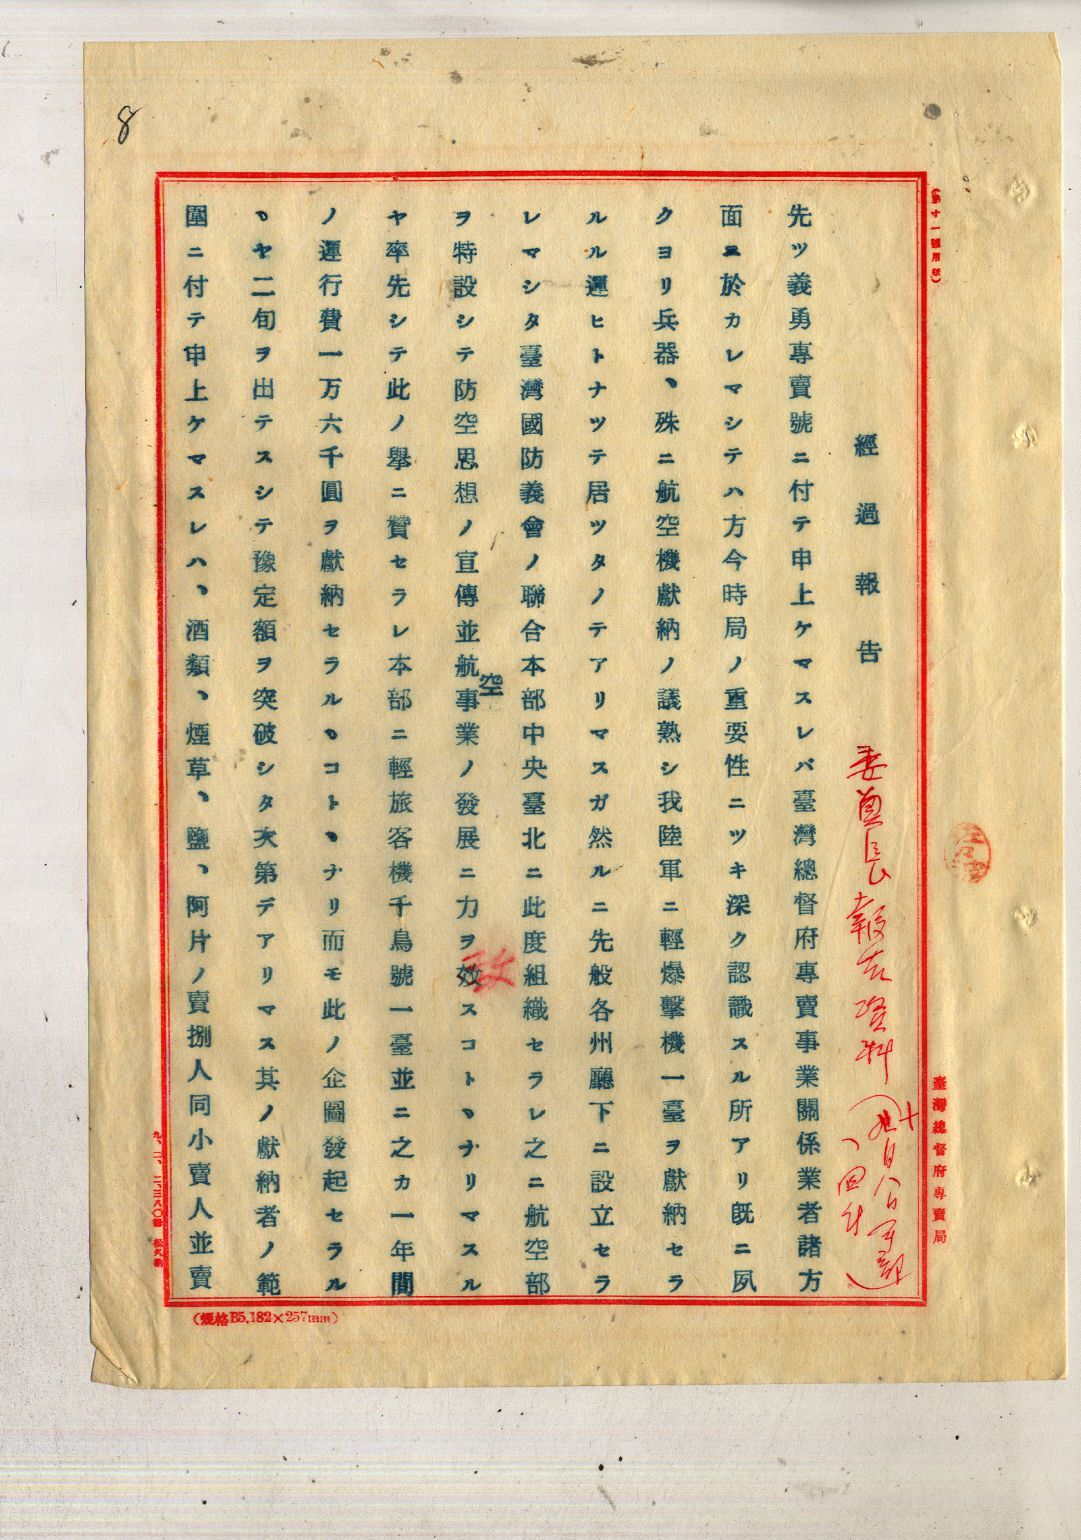 8
(第十一號用紙)
經過報告
委員長報告資料
先ツ義勇專賣號ニ付テ申上ケマスレバ臺灣總督府專賣事業關係業者諸方
面ニ於カレマシテハ方今時局ノ重要性ニツキ深ク認識スル所アリ既ニ夙
クヨリ兵器、殊ニ航空機獻納ノ議熟シ我陸軍ニ輕爆擊機一臺ヲ獻納セラ
ルル運ヒトナツテ居ツタノテアリマスガ然ルニ先般各州廳下ニ設立セラ
レマシタ臺灣國防義會ノ聯合本部中央臺北ニ此度組織セラレ之ニ航空部
ヲ特設シテ防空思想ノ宣傳並航空事業ノ發展ニ力ヲ效スコトヽナリマスル
ヤ率先シテ此ノ舉ニ贊セラレ本部ニ輕旅客機千鳥號一臺並ニ之カ一年間
ノ運行費一万六千圓ヲ獻納セラルヽコトヽナリ而モ此ノ企圖發起セラル
ヽヤ二旬ヲ出テスシテ豫定額ヲ突破シタ次第デアリマス其ノ獻納者ノ範
圍ニ付テ申上ケマスレハ、酒類、煙草、鹽、阿片ノ賣捌人同小賣人並賣
臺灣總督府專賣局
(規格B5,182×257mm)